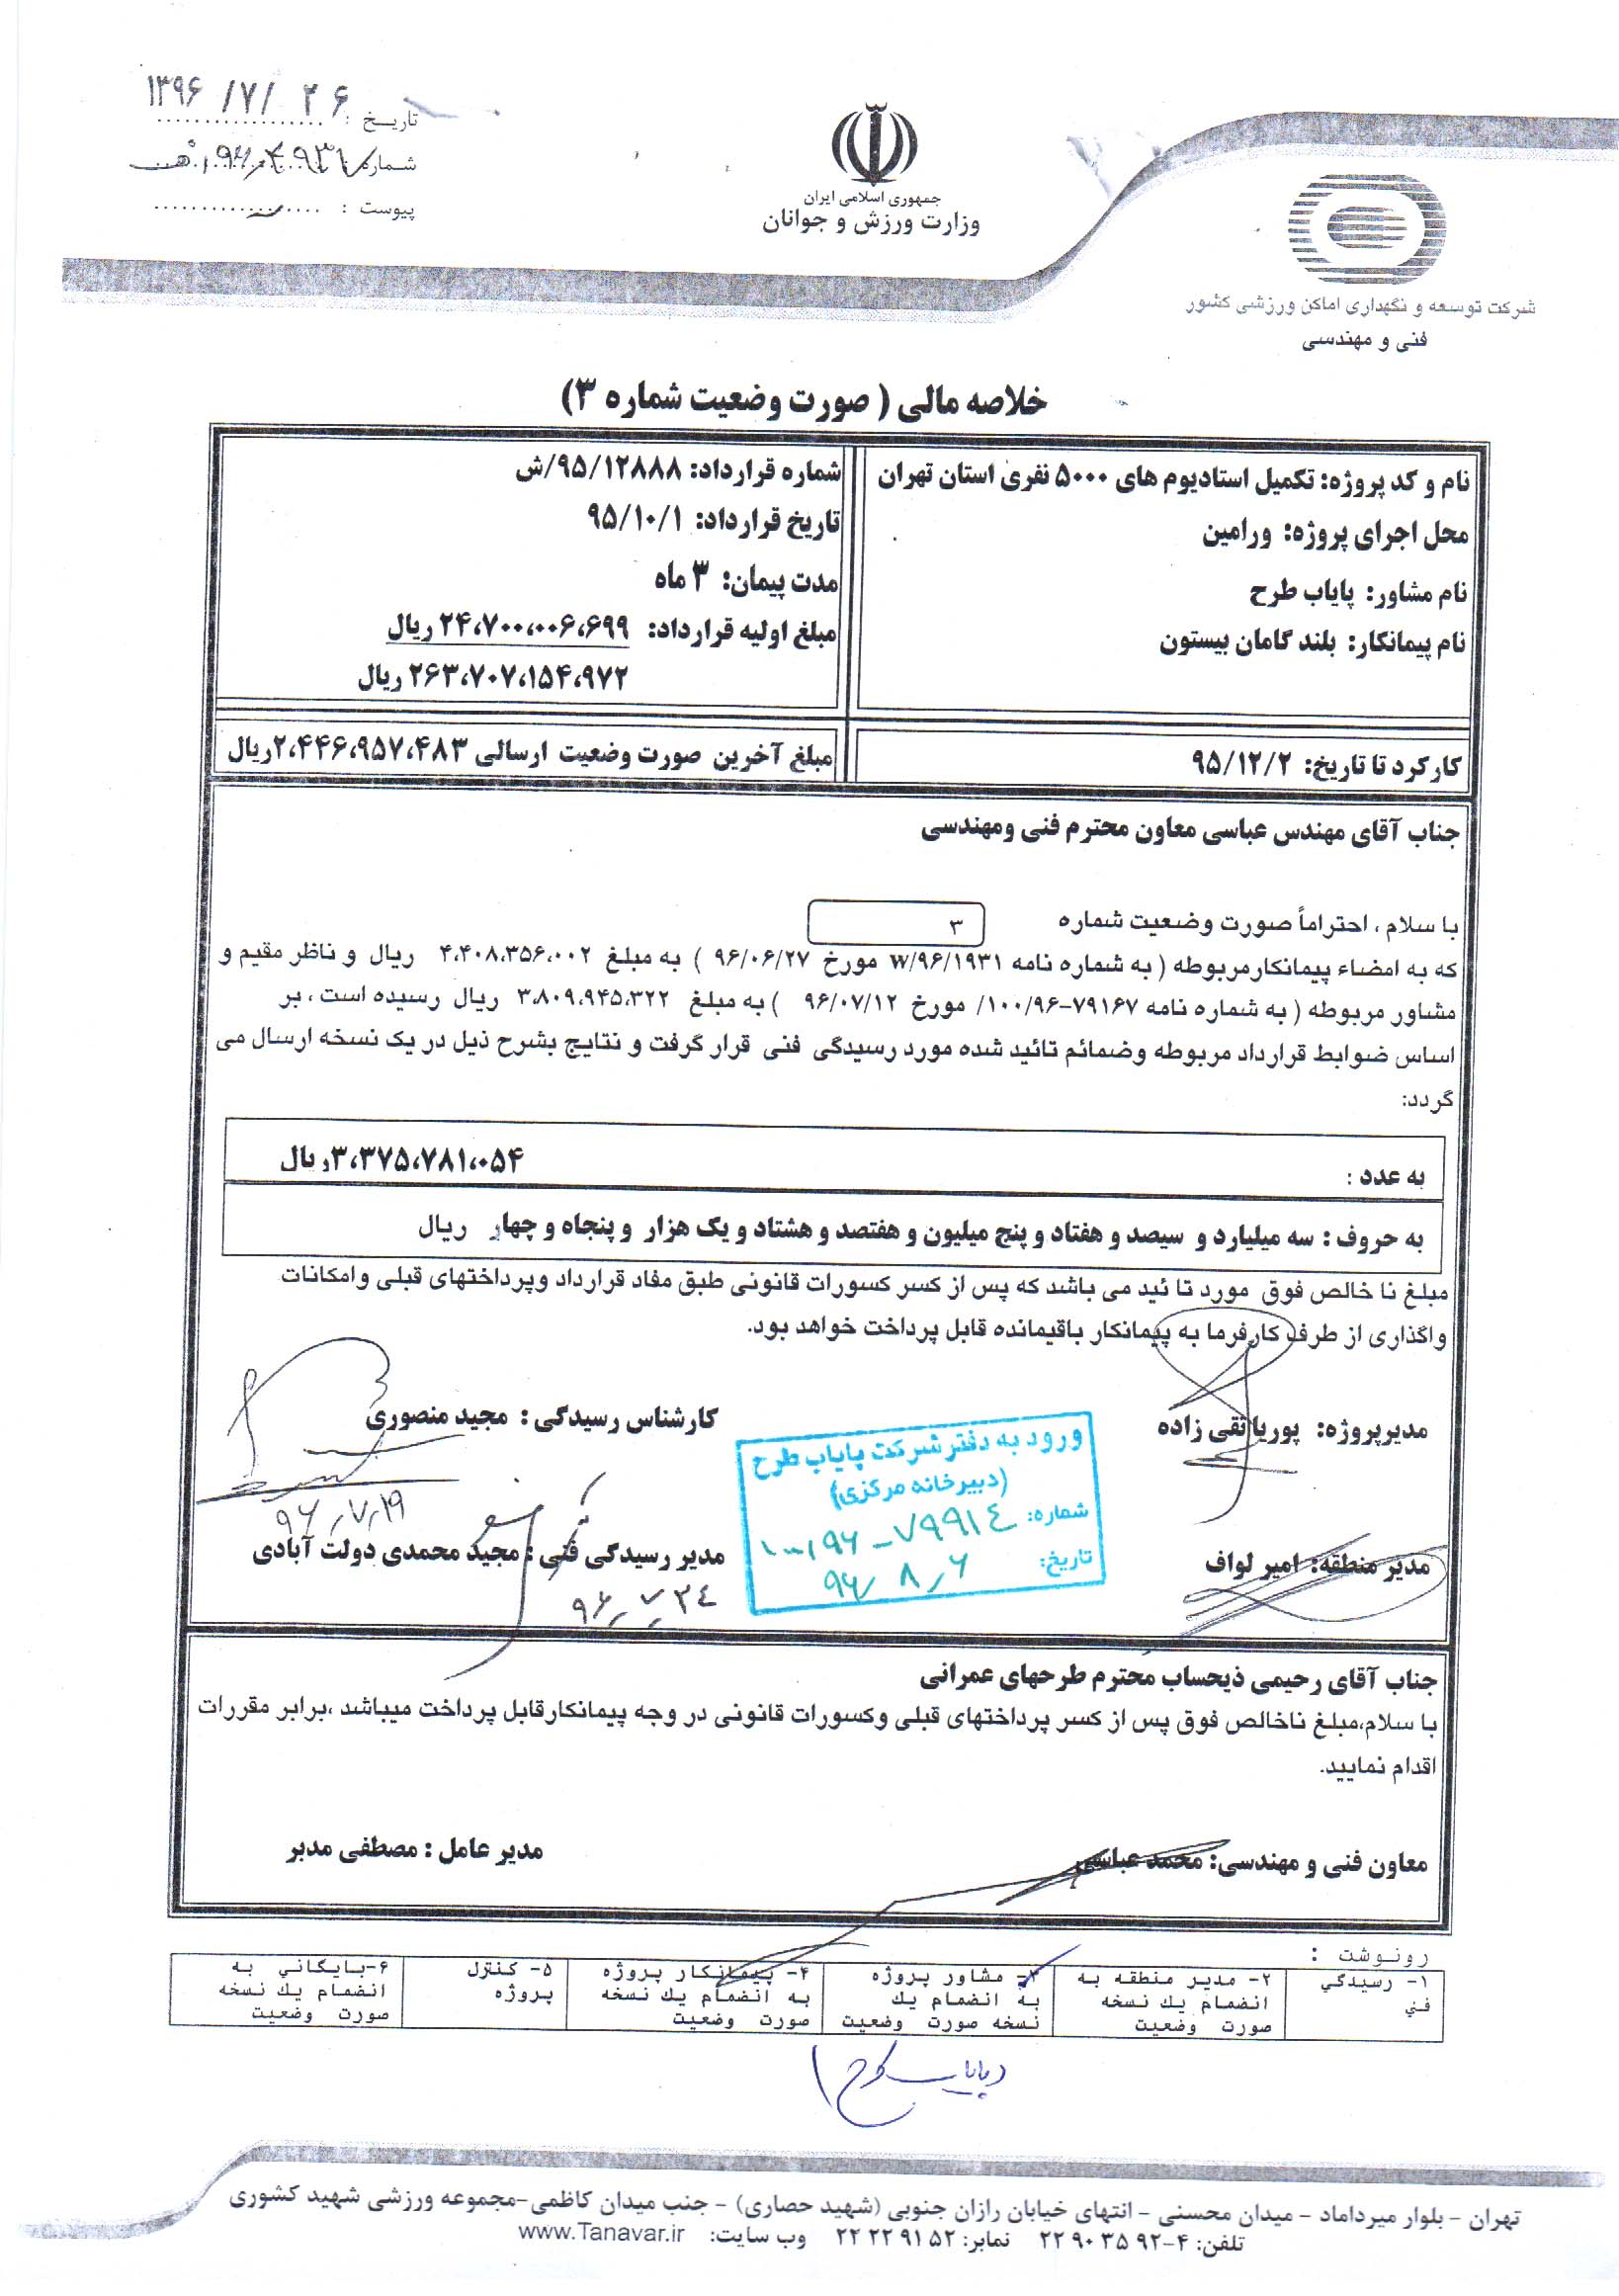 تاریخ : ۱۳۹۶/۷/۲۶
شماره :
پیوست :
جمهوری اسلامی ایران
وزارت ورزش و جوانان
شرکت توسعه و نگهداری اماکن ورزشی کشور
فنی و مهندسی
خلاصه مالی ( صورت وضعیت شماره ۳)
نام و کد پروژه: تکمیل استادیوم های ۵۰۰۰ نفری استان تهران
محل اجرای پروژه: ورامین
نام مشاور: پایاب طرح
نام پیمانکار: بلند گامان بیستون
شماره قرارداد: ۹۵/۱۲۸۸۸/ش
تاریخ قرارداد: ۹۵/۱۰/۱
مدت پیمان: ۳ ماه
مبلغ اولیه قرارداد: ۲۴،۷۰۰،۰۰۶،۶۹۹ ریال
۲۶۳،۷۰۷،۱۵۴،۹۷۲ ریال
کارکرد تا تاریخ: ۹۵/۱۲/۲
مبلغ آخرین صورت وضعیت ارسالی ۲،۴۴۶،۹۵۷،۴۸۳ریال
جناب آقای مهندس عباسی معاون محترم فنی ومهندسی
با سلام ، احتراماً صورت وضعیت شماره ۳
که به امضاء پیمانکارمربوطه ( به شماره نامه w/۹۶/۱۹۳۱ مورخ ۹۶/۰۶/۲۷ ) به مبلغ ۴،۴۰۸،۳۵۶،۰۰۲ ریال و ناظر مقیم و
مشاور مربوطه ( به شماره نامه ۷۹۱۶۷-۱۰۰/۹۶/ مورخ ۹۶/۰۷/۱۲ ) به مبلغ ۳،۸۰۹،۹۴۵،۳۲۲ ریال رسیده است ، بر
اساس ضوابط قرارداد مربوطه وضمائم تائید شده مورد رسیدگی فنی قرار گرفت و نتایج بشرح ذیل در یک نسخه ارسال می
گردد:
به عدد : ۳،۳۷۵،۷۸۱،۰۵۴ریال
به حروف : سه میلیارد و سیصد و هفتاد و پنج میلیون و هفتصد و هشتاد و یک هزار و پنجاه و چهار ریال
مبلغ نا خالص فوق مورد تا ئید می باشد که پس از کسر کسورات قانونی طبق مفاد قرارداد وپرداختهای قبلی وامکانات
واگذاری از طرف کارفرما به پیمانکار باقیمانده قابل پرداخت خواهد بود.
مدیرپروژه: پوریا تقی زاده
کارشناس رسیدگی : مجید منصوری
۹۶,۷,۱۹
ورود به دفتر شرکت پایاب طرح
(دبیرخانه مرکزی)
شماره: ۱۰۰,۹۶-۷۹۹۱٤
تاریخ: ۹۶,۸,۶
مدیر منطقه: امیر لواف
مدیر رسیدگی فنی : مجید محمدی دولت آبادی
۹۶,۷,۲٤
جناب آقای رحیمی ذیحساب محترم طرحهای عمرانی
با سلام،مبلغ ناخالص فوق پس از کسر پرداختهای قبلی وکسورات قانونی در وجه پیمانکارقابل پرداخت میباشد ،برابر مقررات
اقدام نمایید.
معاون فنی و مهندسی: محمد عباسی
مدیر عامل : مصطفی مدبر
رونوشت :
۱- رسیدگي فني
۲- مدیر منطقه به انضمام یك نسخه صورت وضعیت
۳- مشاور پروژه به انضمام یك نسخه صورت وضعیت
۴- پیمانکار پروژه به انضمام یك نسخه صورت وضعیت
۵- کنترل پروژه
۶-بایگاني به انضمام یك نسخه صورت وضعیت
تهران - بلوار میرداماد - میدان محسنی - انتهای خیابان رازان جنوبی (شهید حصاری) - جنب میدان کاظمی-مجموعه ورزشی شهید کشوری
تلفن: ۴-۹۲ ۳۵ ۹۰ ۲۲ نمابر: ۵۲ ۹۱ ۲۲ ۲۲ وب سایت: www.Tanavar.ir